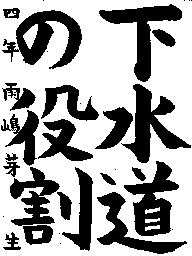 下水道
の役割
四年 雨嶋芽生